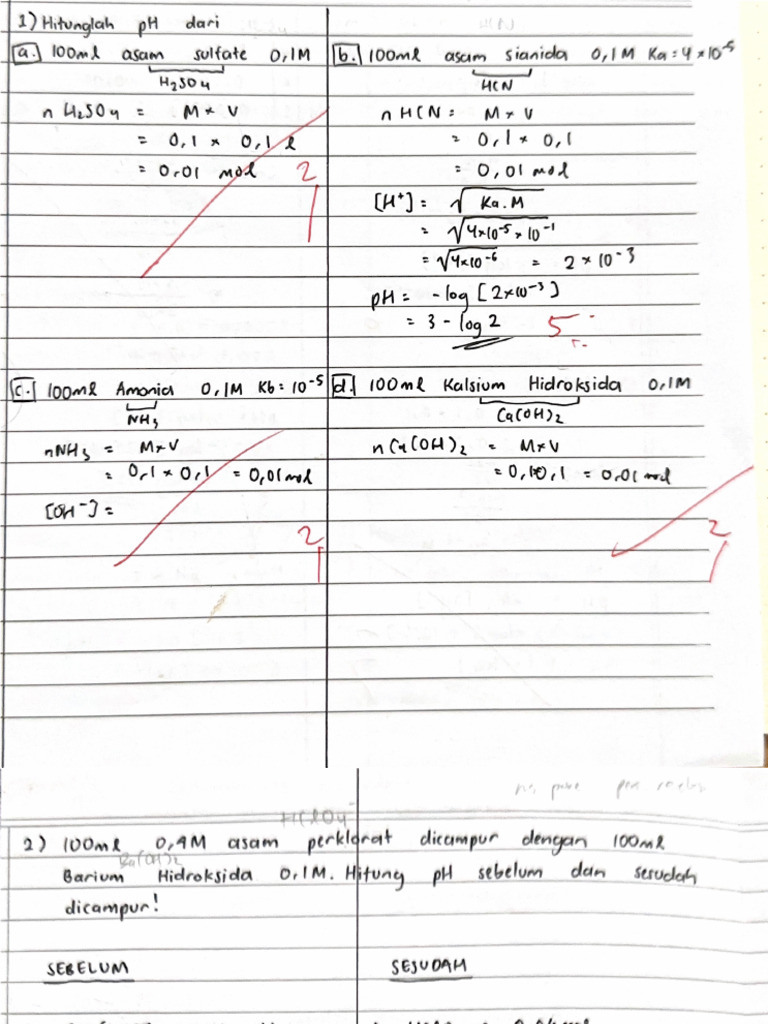 1) Hitunglah pH dari
a. 100ml asam sulfate 0,1M
H₂SO₄
n H₂SO₄ = M × V
= 0,1 × 0,1 l
= 0,01 mol
2
b. 100ml asam sianida 0,1M Ka = 4 × 10⁻⁵
HCN
n HCN = M × V
= 0,1 × 0,1
= 0,01 mol
[H⁺] = √Ka.M
= √4×10⁻⁵×10⁻¹
= √4×10⁻⁶ = 2 × 10⁻³
pH = -log [2×10⁻³]
= 3 - log 2
5
c. 100ml Amonia 0,1M Kb = 10⁻⁵
NH₃
nNH₃ = M×V
= 0,1 × 0,1 = 0,01 mol
[OH⁻] =
2
d. 100ml Kalsium Hidroksida 0,1M
Ca(OH)₂
n Ca(OH)₂ = M×V
= 0,1×0,1 = 0,01 mol
2
HClO₄
2) 100ml 0,4M asam perklorat dicampur dengan 100ml
Ba(OH)₂
Barium Hidroksida 0,1M. Hitung pH sebelum dan sesudah
dicampur!
SEBELUM
SESUDAH